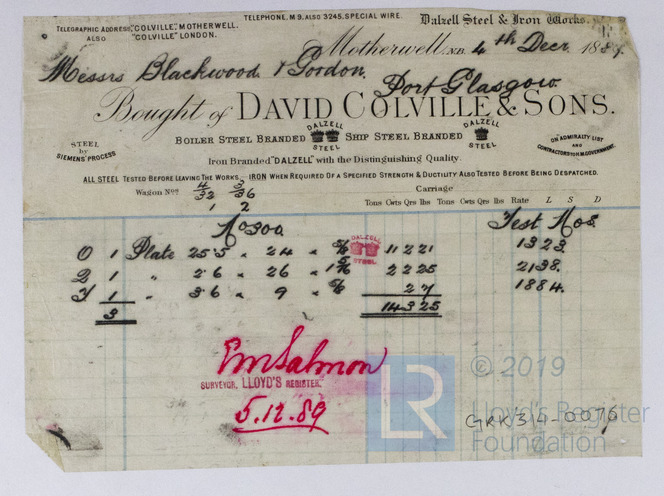 TELEGRAPHIC ADDRESS, "COLVILLE", MOTHERWELL.
ALSO "COLVILLE" LONDON.
TELEPHONE, Mg. ALSO 3245, SPECIAL WIRE.
Dalzell Steel & Iron Works.
Motherwell, N.B. 4th Decr. 1889.
Messrs Blackwood & Gordon,
Port Glasgow.
Bought of DAVID COLVILLE & SONS.
STEEL by SIEMENS' PROCESS
BOILER STEEL BRANDED DALZELL STEEL SHIP STEEL BRANDED DALZELL STEEL
ON ADMIRALTY LIST AND CONTRACTORS TO H.M. GOVERNMENT.
Iron Branded "DALZELL" with the Distinguishing Quality.
ALL STEEL TESTED BEFORE LEAVING THE WORKS. IRON WHEN REQUIRED OF A SPECIFIED STRENGTH & DUCTILITY ALSO TESTED BEFORE BEING DESPATCHED.
Wagon Nos 4/32 3/36 Carriage
1 2
Tons Cwts Qrs lbs Tons Cwts Qrs lbs Rate L S D
No 300. Test Nos.
1 Plate 255 × 24 × 11 2 21 1323.
DALZELL STEEL
1 " 26 × 26 × 2 2 25 2138.
1 " 36 × 9 × 2 7 1884.
3 14 3 25
E M Salmon
SURVEYOR, LLOYD'S REGISTER.
5.12.89
LR
© 2019
Lloyd's Register
Foundation
GRK314-0076